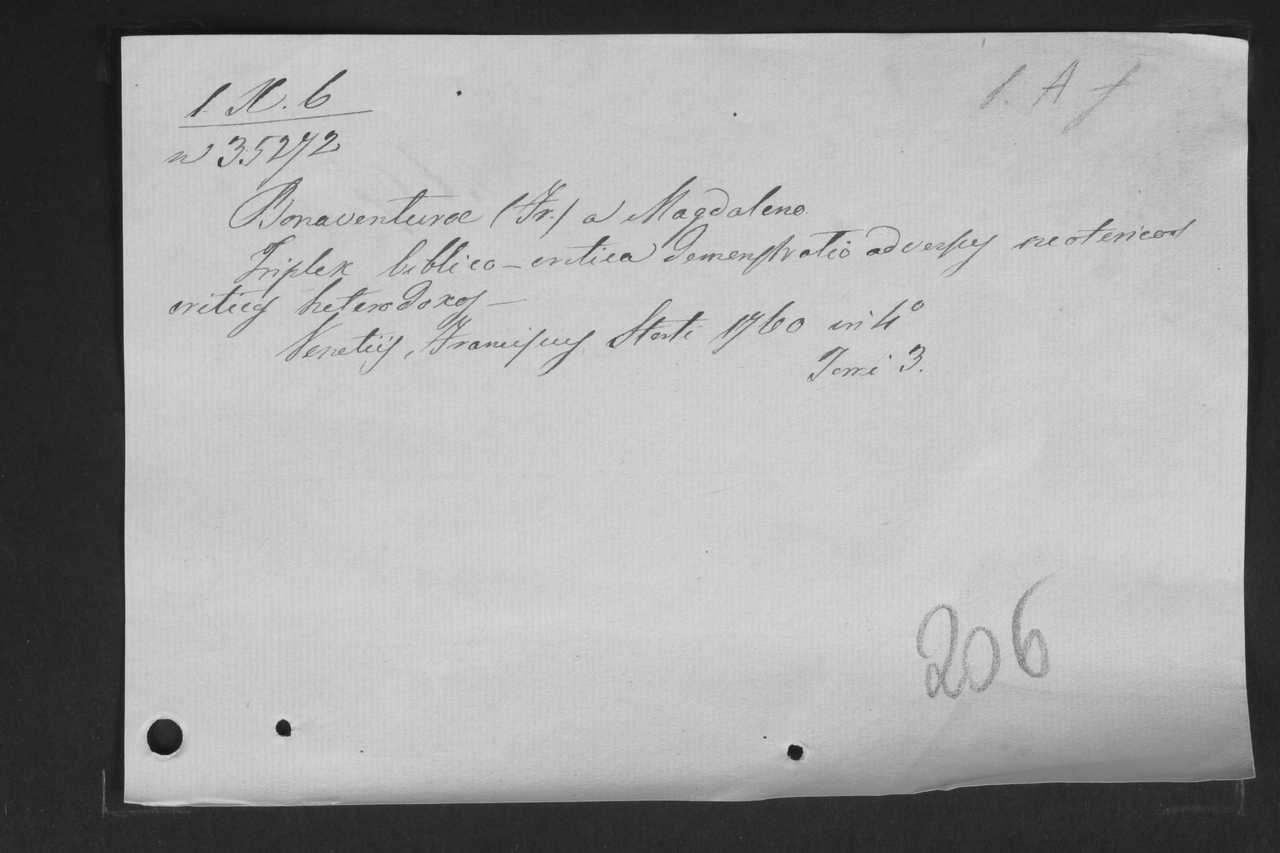 1. X. 6
1. A f
n 35272
Bonaventurae (Fr.) a Magdalena
Triplex biblico-critica demonstratio adversus neotericos
criticos heterodoxos -
Venetiis, Franciscus Storti 1760 in 4°
Tomi 3.
206